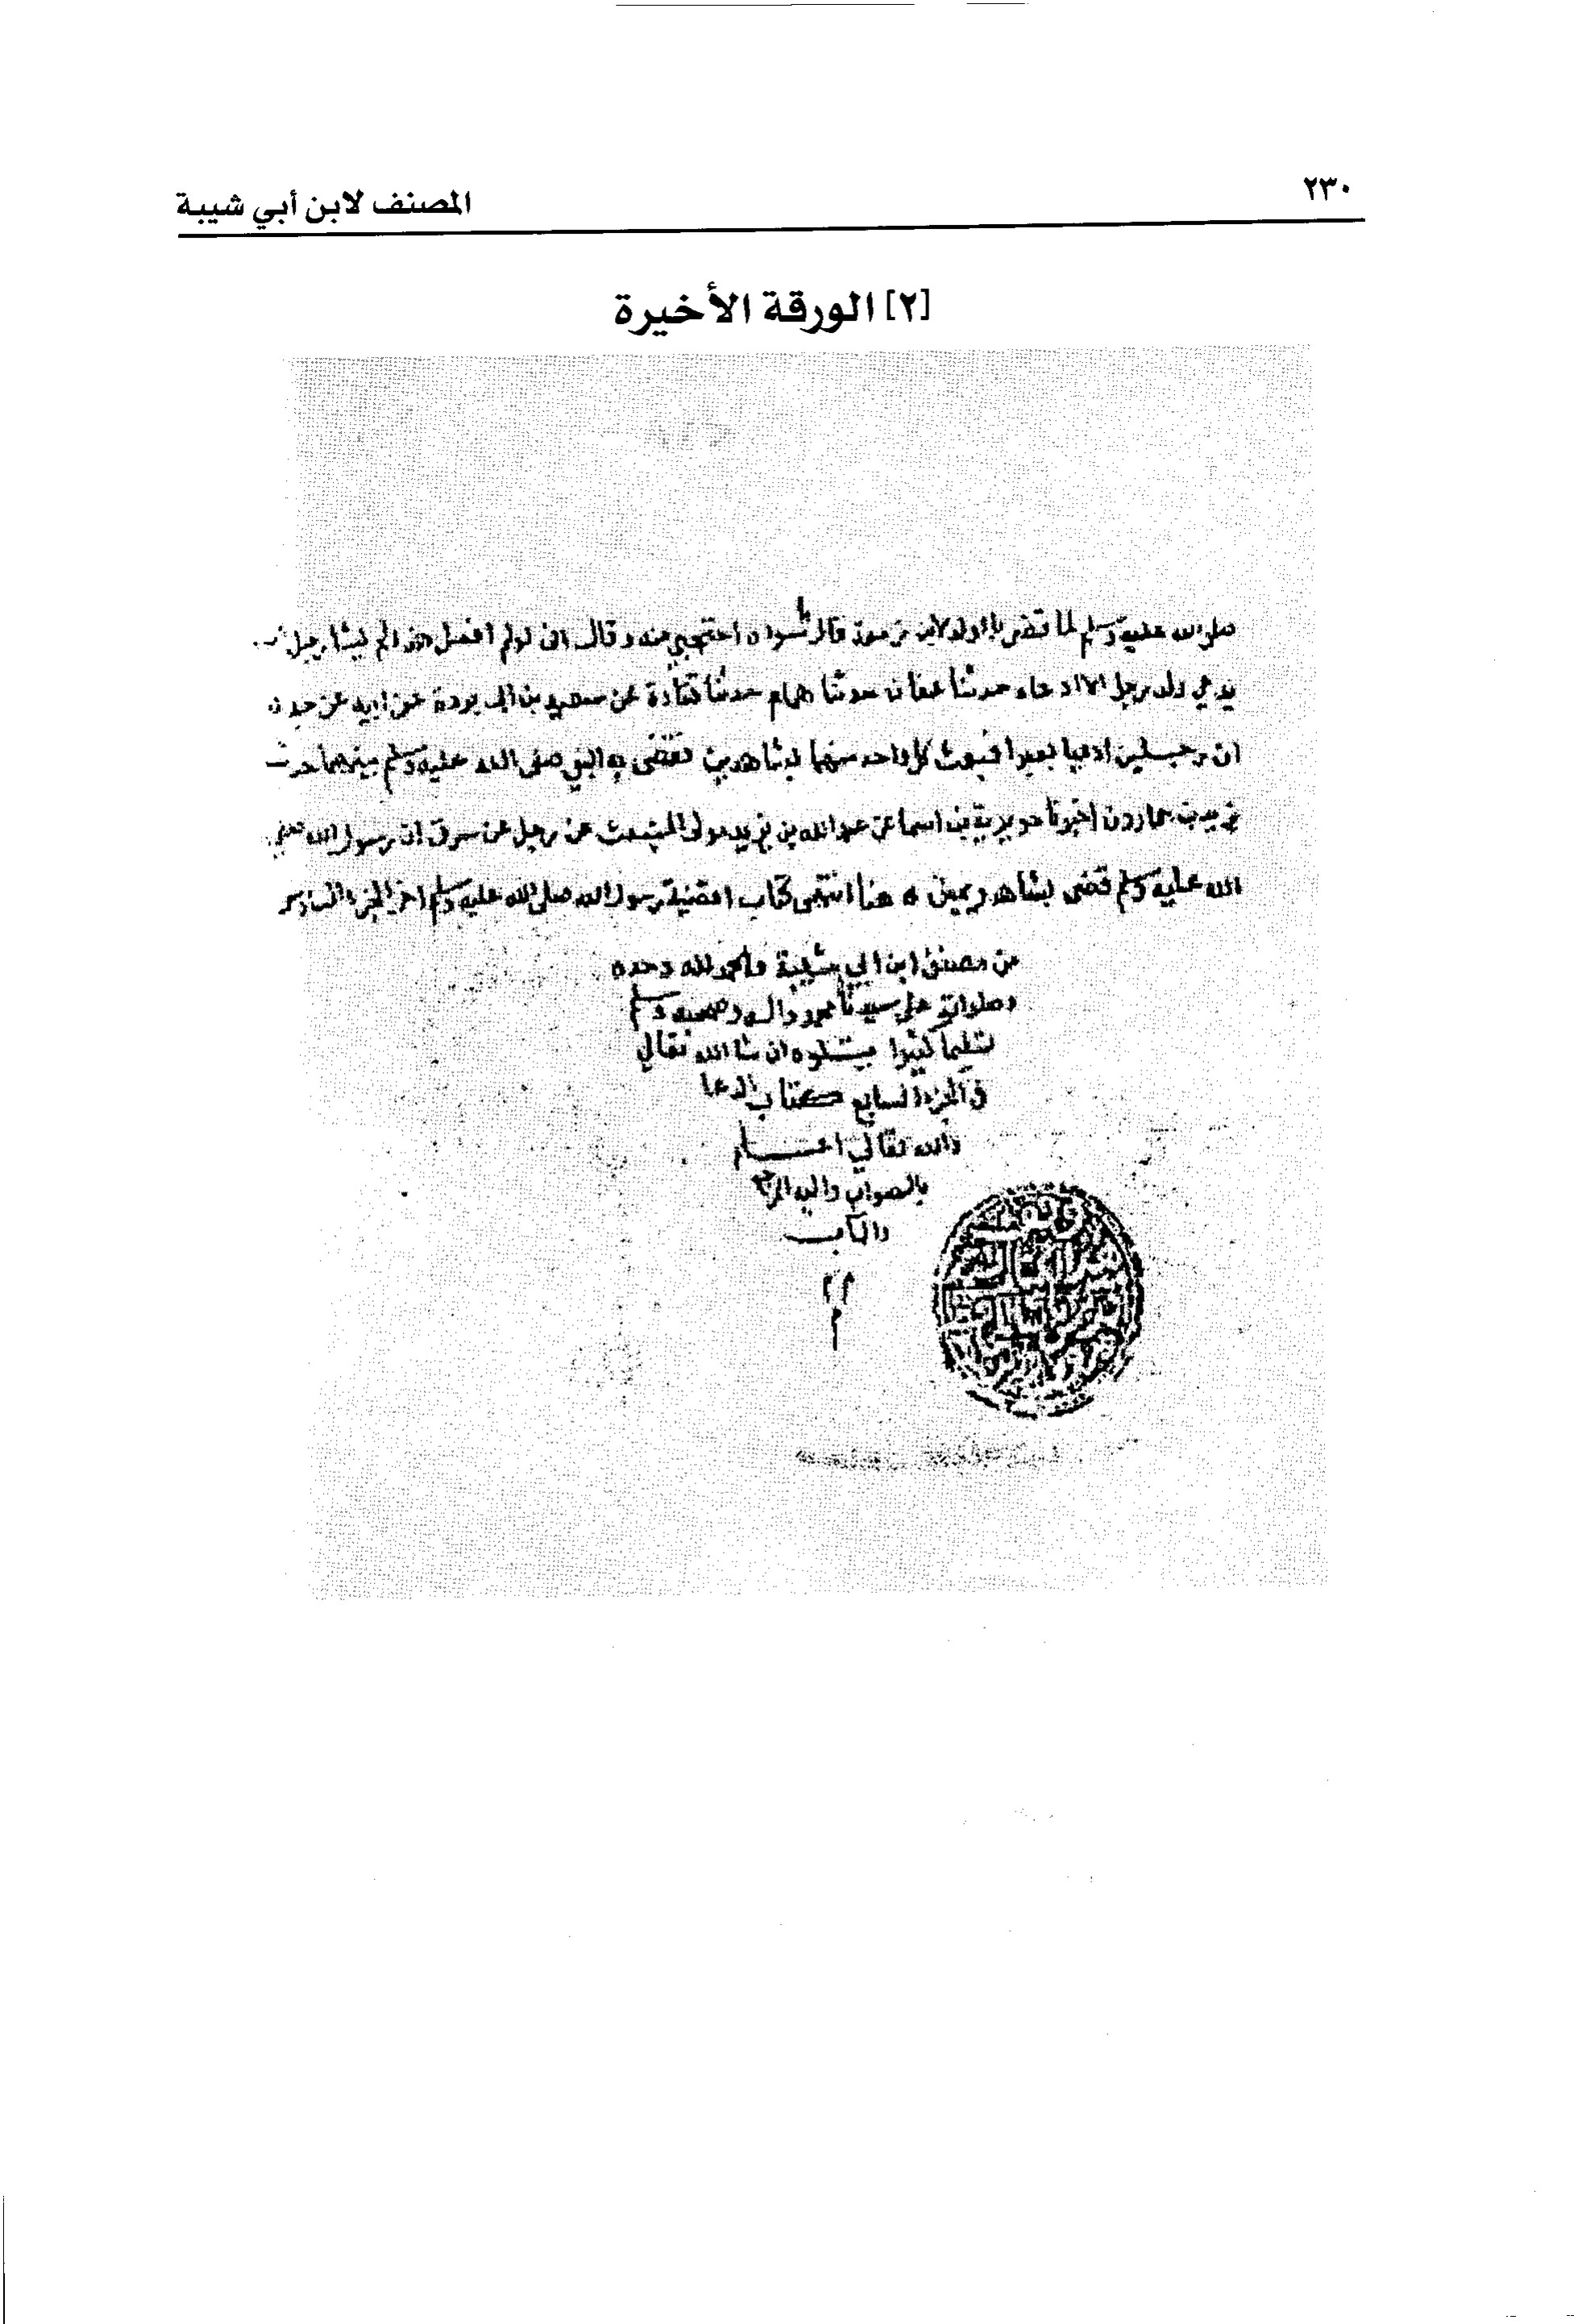 ٢٣٠
المصنف لابن أبي شيبة
[٢] الورقة الأخيرة
صلى الله عليه وسلم لما قضى بالولد لابن زمعة قال لسودة احتجبي منه وقال
يدعي ولد رجل الا ادعاه حدثنا عفان حدثنا همام حدثنا قتادة عن سعيد بن ابي بردة عن ابيه عن جده
ان رجلين ادعيا بعيرا فبعث كل واحد منهما بشاهدين فقضى به النبي صلى الله عليه وسلم بينهما حدثنا
يزيد بن هارون اخبرنا جويرية بن اسما عن عبد الله بن يزيد مولى المنبعث عن رجل عن سرق ان رسول الله صلى
الله عليه وسلم قضى بشاهد ويمين ه هنا انتهى كتاب اقضية رسول الله صلى الله عليه وسلم اخر الجزء السادس
من مصنف ابن ابي شيبة والحمد لله وحده
وصلواته على سيدنا محمد واله وصحبه وسلم
تسليما كثيرا يتلوه ان شا الله تعالى
في الجزء السابع كتاب الدعا
والله تعالى اعلم
بالصواب واليه المرجع
والمآب